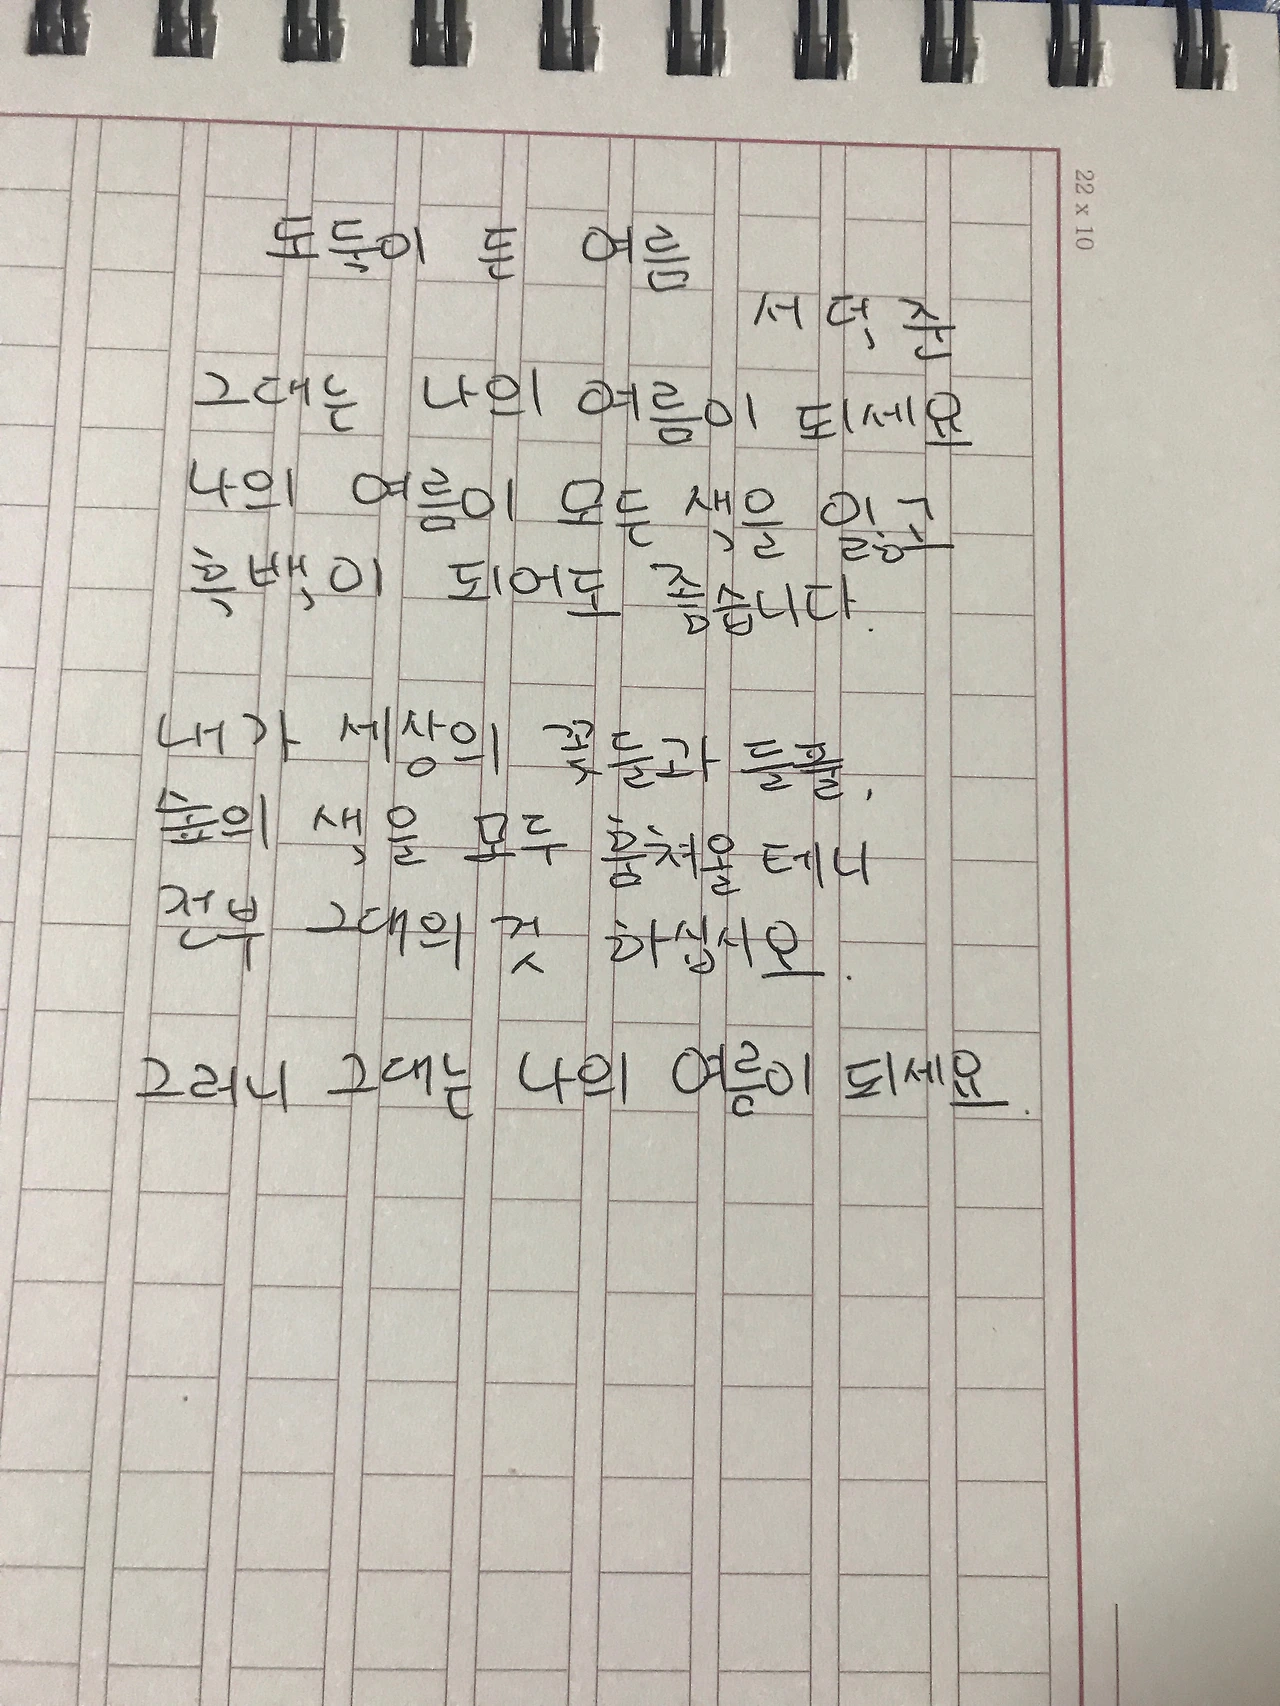 도둑이 든 여름
서덕준
그대는 나의 여름이 되세요
나의 여름이 모든 색을 잃고
흑백이 되어도 좋습니다.
내가 세상의 꽃들과 들풀,
숲의 색을 모두 훔쳐올 테니
전부 그대의 것 하십시오.
그러니 그대는 나의 여름이 되세요.
22 x 10